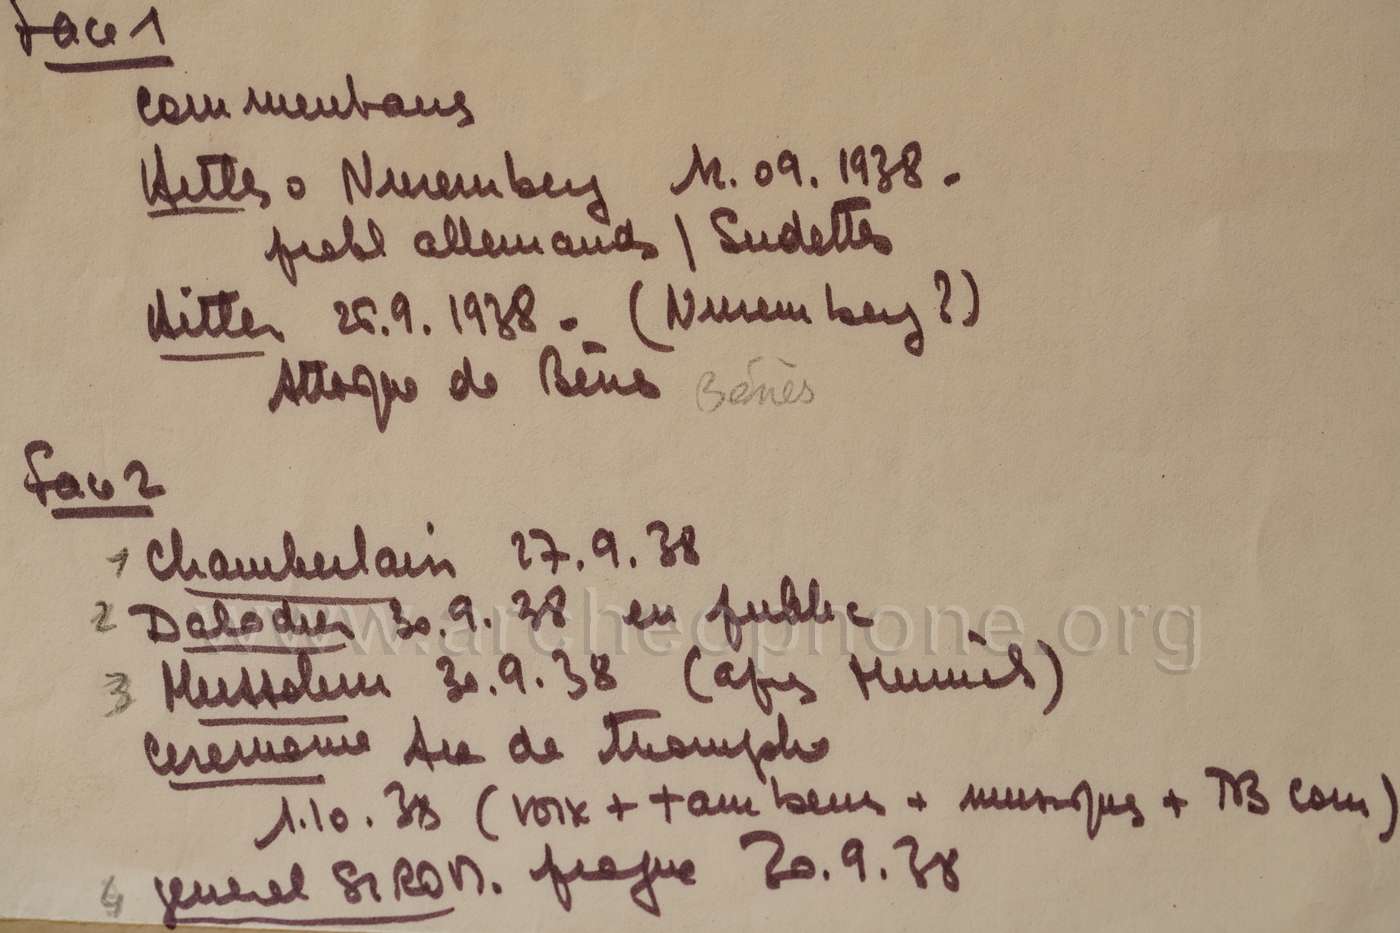 Face 1
commentaires
Hitler o Nuremberg 12.09.1938.
probl allemands / Sudettes
Hitler 26.9.1938. (Nuremberg?)
Attaque de Bénès Bénès
Face 2
1 Chamberlain 27.9.38
2 Daladier 30.9.38 en public
www.archeophone.org
3 Mussolini 30.9.38 (après Munich)
Ceremonie Arc de Triomphe
1.10.38 (voix + tambours + musiques + TB com)
4 general SIROVI. prague 30.9.38